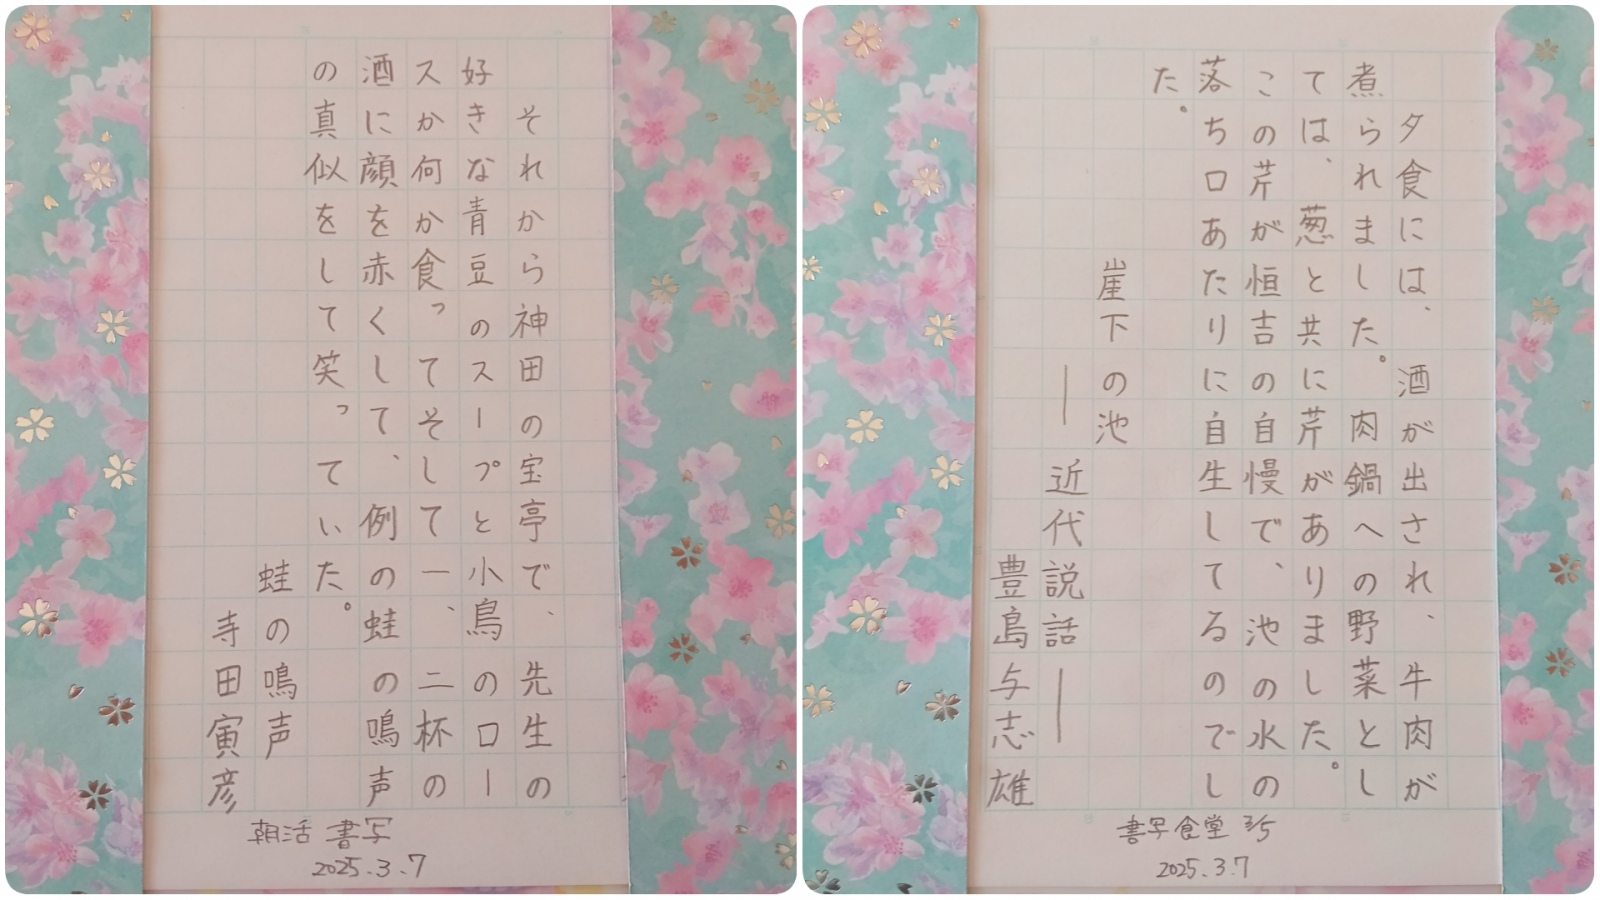 それから神田の宝亭で、先生の
好きな青豆のスープと小鳥のロー
スか何か食ってそして一、二杯の
酒に顔を赤くして、例の蛙の鳴声
の真似をして笑っていた。
蛙の鳴声
寺田寅彦
朝活書写
2025.3.7
夕食には、酒が出され、牛肉が
煮られました。肉鍋への野菜とし
ては、葱と共に芹がありました。
この芹が恒吉の自慢で、池の水の
落ち口あたりに自生してるのでし
た。
崖下の池
―近代説話―
豊島与志雄
書写食堂 3/5
2025.3.7